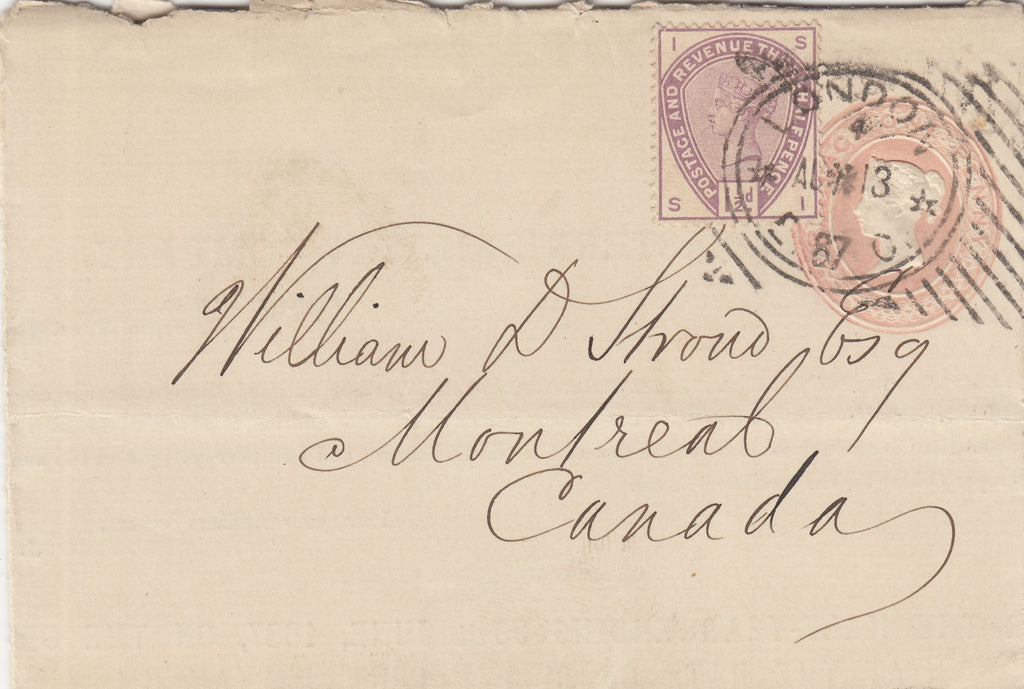 I S
POSTAGE AND REVENUE THREE HALF PENCE
S 1½d I
LONDON
AU 13
87
William D Stroud Esq
Montreal
Canada